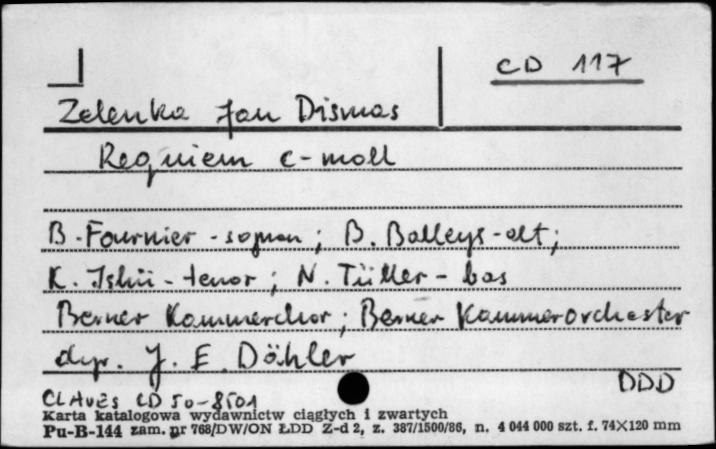 CD 117
Zelenka Jan Dismas
Requiem c-moll
B. Fournier - sopran; B. Balleys - alt;
K. Ishii - tenor; N. Tüller - bas
Berner Kammerchor; Berner Kammerorchester
dyr. J. E. Dähler
DDD
CLAVES CD 50-8501
Karta katalogowa wydawnictw ciągłych i zwartych
Pu-B-144 zam. nr 768/DW/ON ŁDD Z-d 2, z. 387/1500/86, n. 4 044 000 szt. f. 74×120 mm